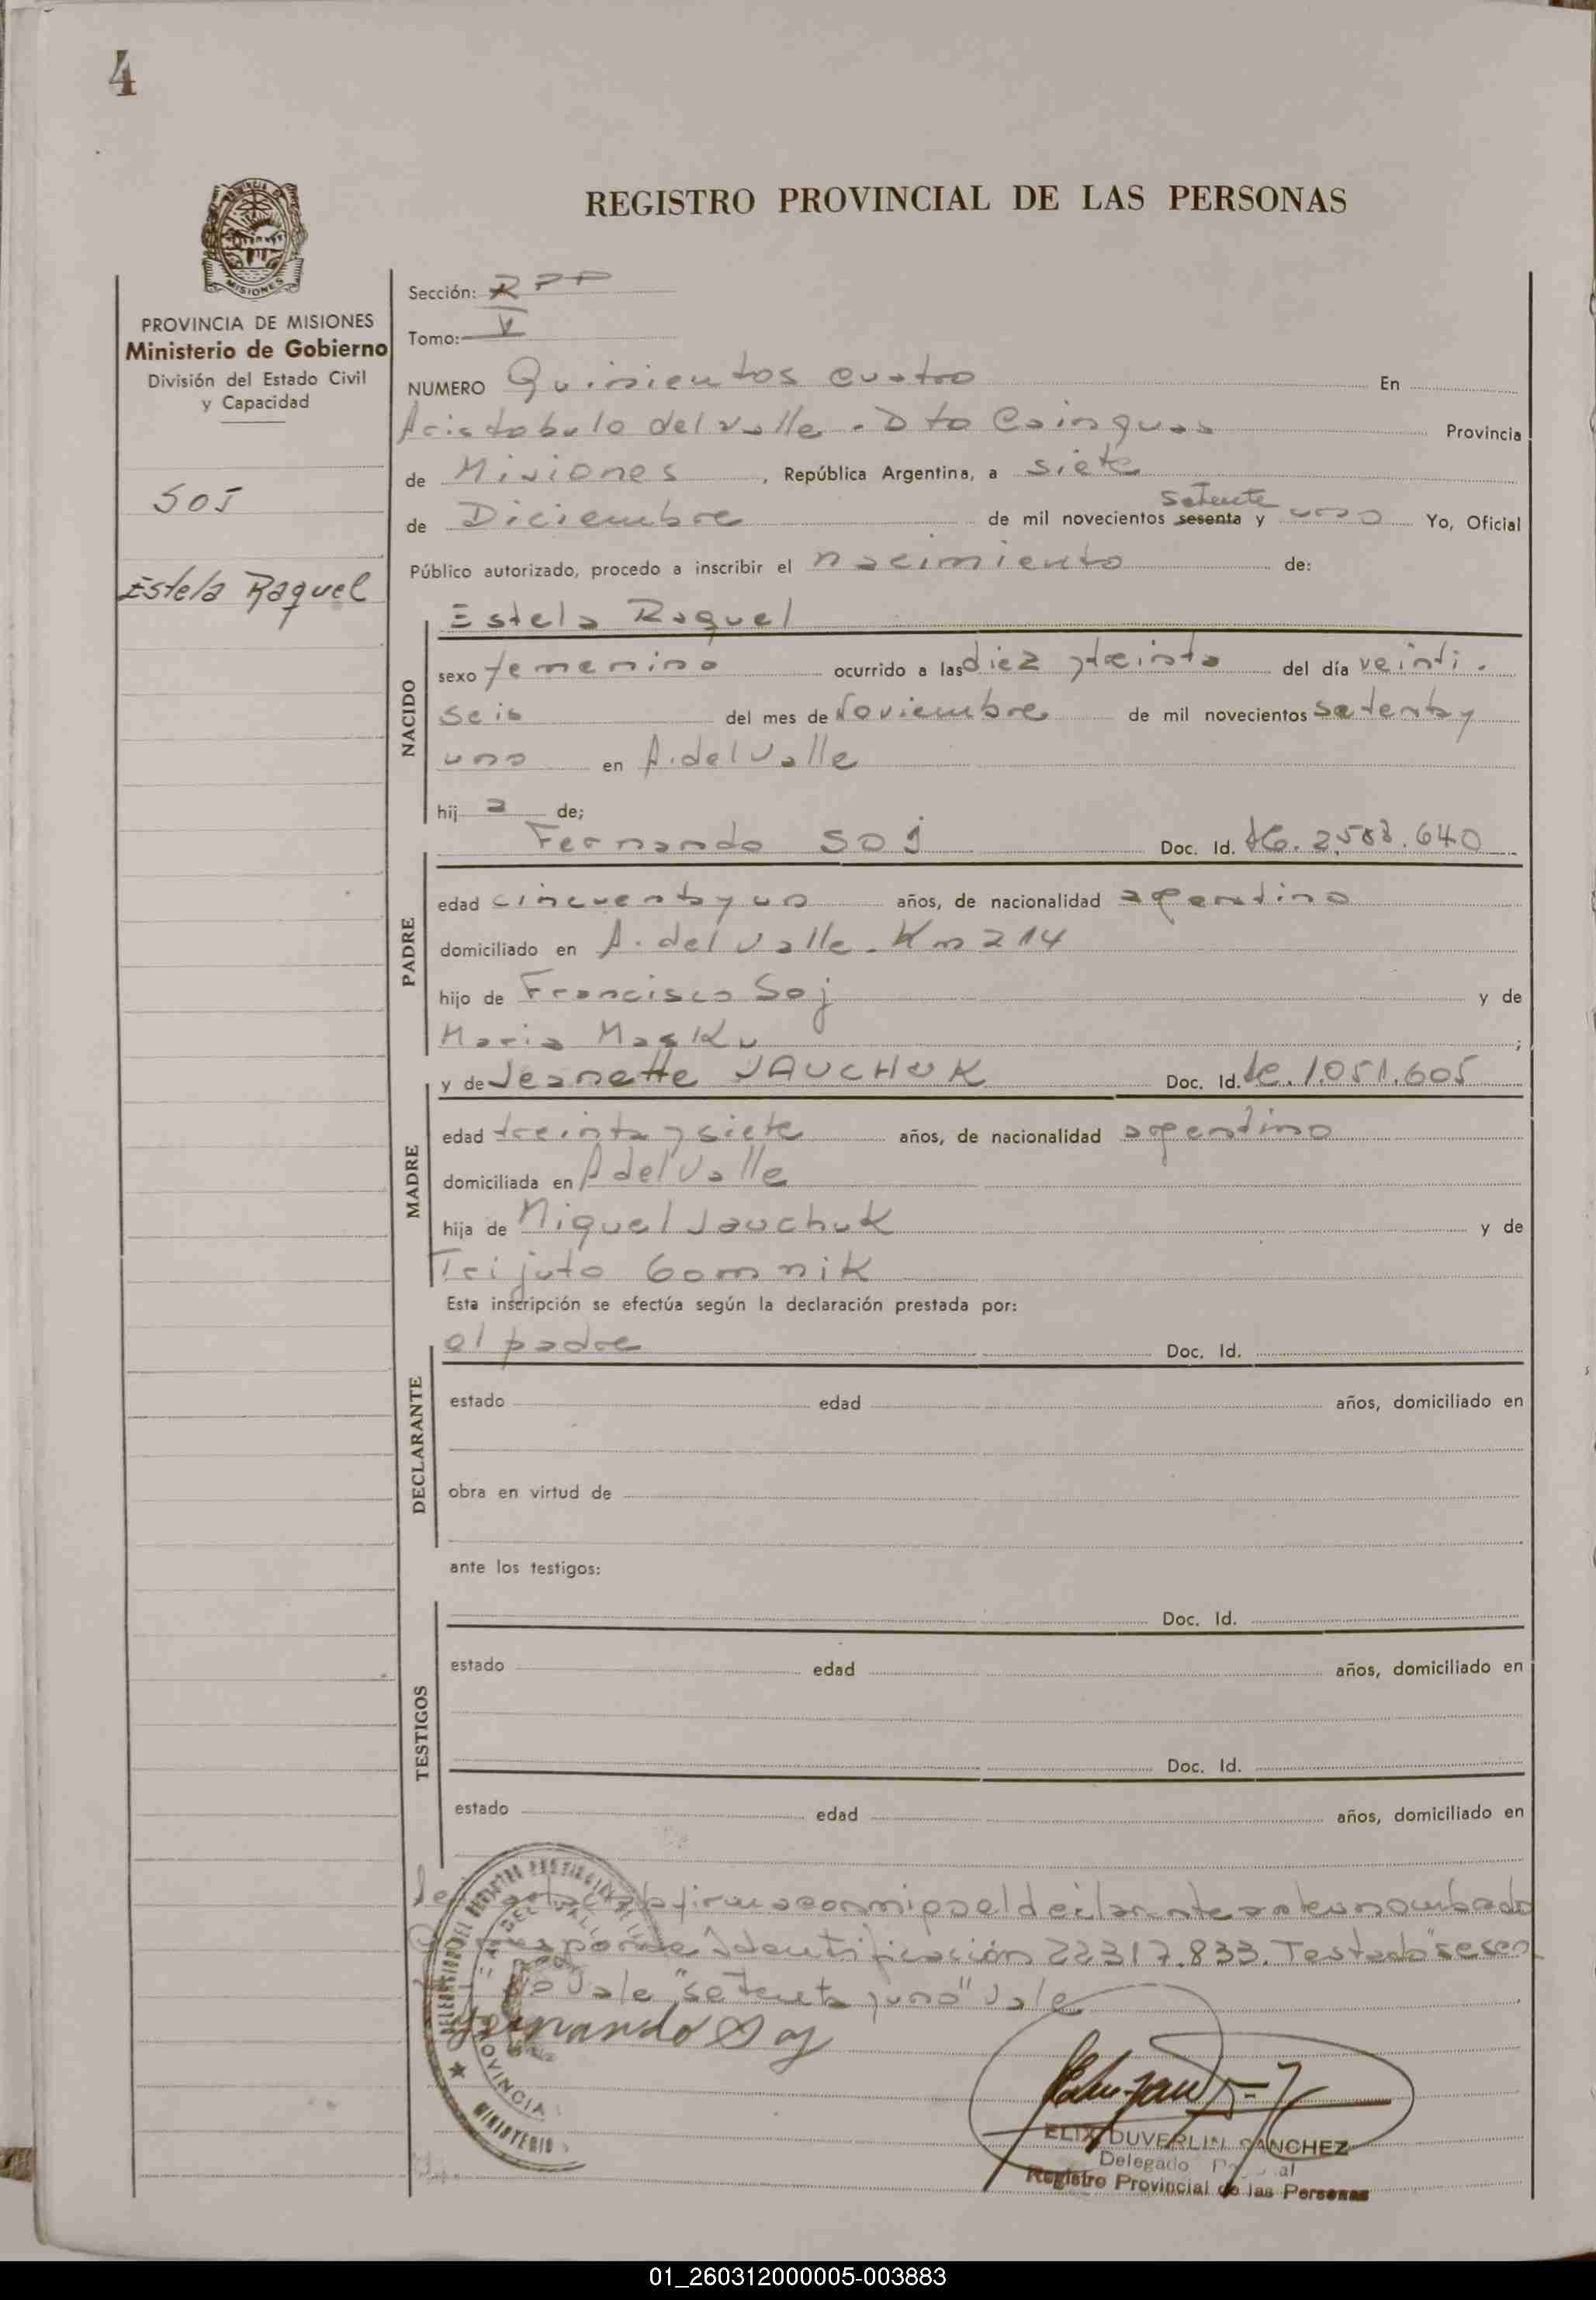 4
REGISTRO PROVINCIAL DE LAS PERSONAS
MISIONES
PROVINCIA DE MISIONES
Ministerio de Gobierno
División del Estado Civil
y Capacidad
SOJ
Estela Raquel
Sección: RPP
Tomo: V
NUMERO Quinientos cuatro En
Aristobulo del valle. Dto Cainguas Provincia
de Misiones, República Argentina, a siete
setenta
de Diciembre de mil novecientos sesenta y uno Yo, Oficial
Público autorizado, procedo a inscribir el nacimiento de:
NACIDO
Estela Raquel
sexo femenino ocurrido a las diez y treinta del día veinti.
seis del mes de Noviembre de mil novecientos setenta y
uno en A. del Valle
hij a de;
PADRE
Fernando SOJ Doc. Id. 2.583.640
edad cincuenta y un años, de nacionalidad argentino
domiciliado en A. del Valle. Km 214
hijo de Francisco Soj y de
Maria Masku ;
MADRE
y de Jeanette JAUCHUK Doc. Id. 1.051.605
edad treinta y siete años, de nacionalidad argentino
domiciliada en A del Valle
hija de Miguel Jauchuk y de
Gomnik
Esta inscripción se efectúa según la declaración prestada por:
DECLARANTE
el padre Doc. Id.
estado edad años, domiciliado en
obra en virtud de
ante los testigos:
TESTIGOS
Doc. Id.
estado edad años, domiciliado en
Doc. Id.
estado edad años, domiciliado en
firma conmigo el declarante antes nombrado
Identificación 22.317.833. Testado "sesen
Vale "setenta y uno" Vale
Fernando Soj
PROVINCIA
MINISTERIO
DUVERLIN SANCHEZ
Delegado
Registro Provincial de las Personas
01_260312000005-003883